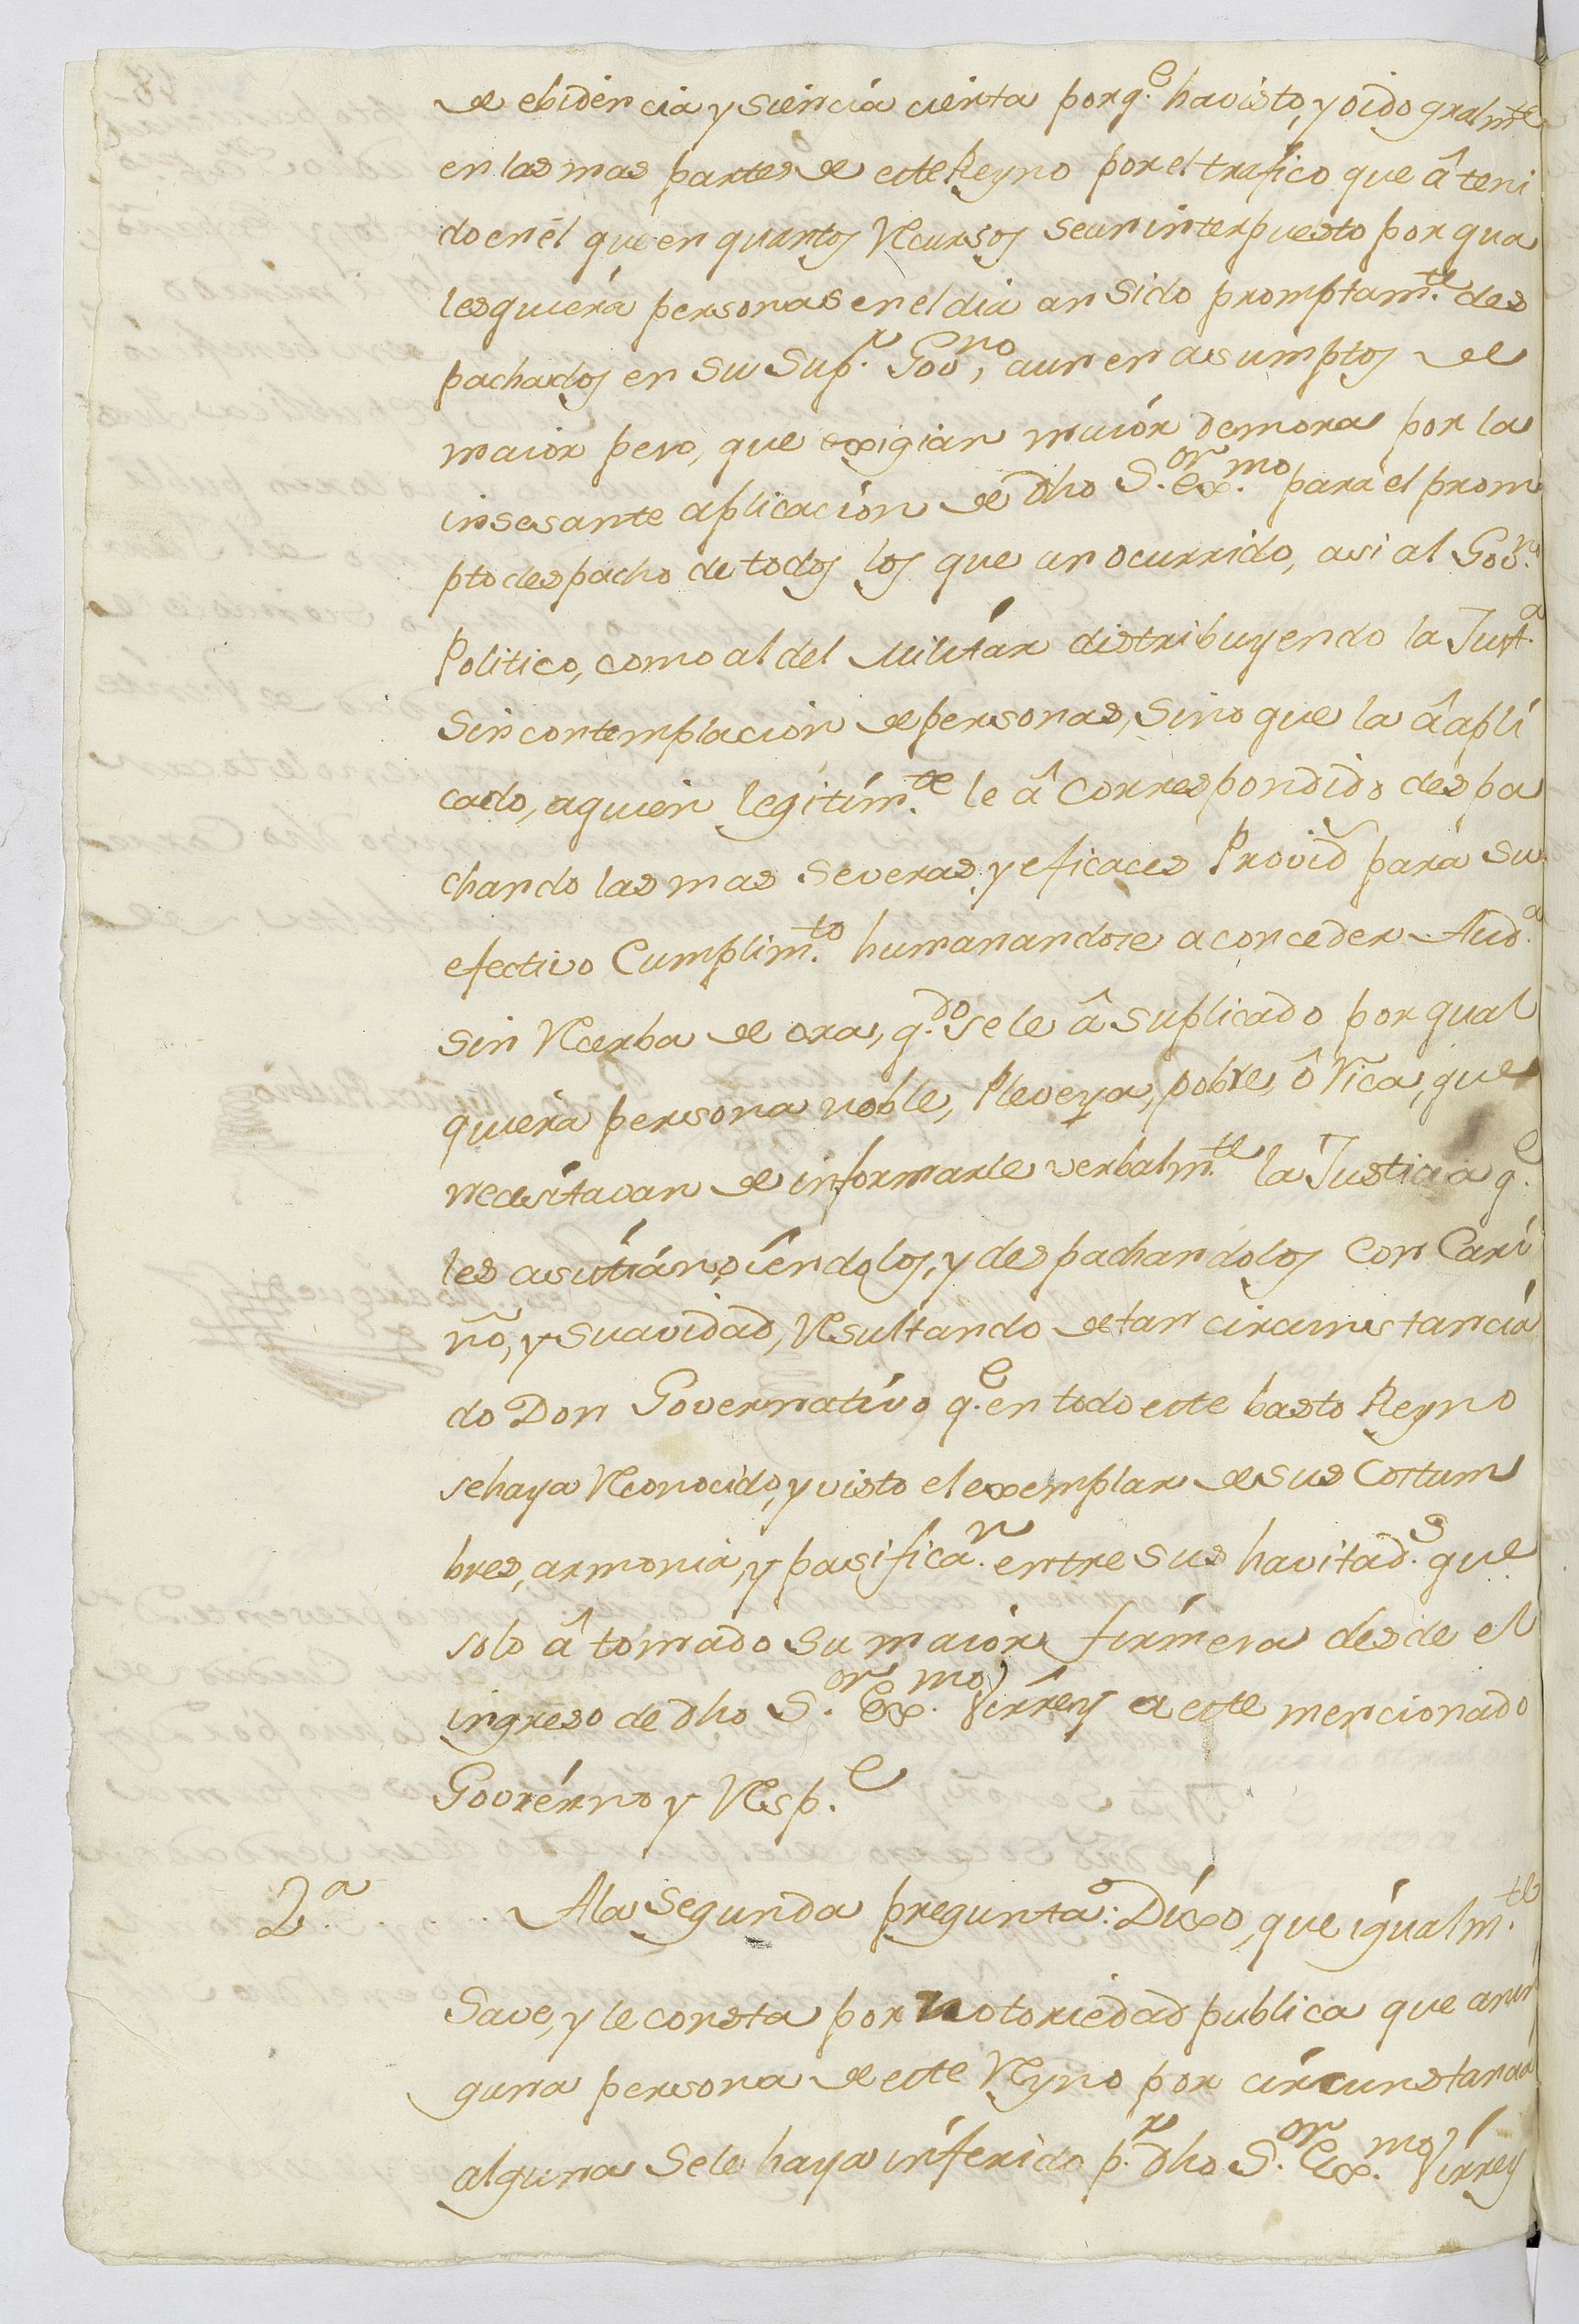 de ebidencia y siencia cierta porq.e ha visto, y oido gralm.te
en las mas partes de este Reyno por el trafico que â teni
do en èl que en quantos Recursos se an interpuesto por qua
lesquiera personas en el dia an sido promptam.te des
pachados en su Sup.r Gov.no, aun en asumptos de
maior peso, que exigian maior demora por la
insesante aplicacion de dho S.or Ex.mo para el prom
pto despacho de todos los que an ocurrido, asi al Gov.no
Politico, como al del Militar distribuyendo la Just.a
sin contemplacion de personas, sino que la â apli
cado, a quien legitim.te le â correspondido despa
chando las mas severas, y eficaces Provid para su
efectivo Cumplim.to humanandose a conceder Aud.a
sin Recerba de ora, q.do se le â suplicado por qual
quiera persona noble, Pleveya, pobre, ô Rica, que
necesitavan de informarle verbalm.te la Justicia q.e
les asistian, oiendolos, y despachandolos con Cari
ño, y suavidad, Resultando de tan circunstancia
do Don Governativo q.e en todo este basto Reyno
se haya Reconocido, y visto el exemplar de sus Costum
bres, armonia, y pasifica.n entre sus havitad.s que
solo â tomado su maior firmesa desde el
ingreso de dho S.or Ex.mo Virrey a este mencionado
Govierno y Resp.e
2.a . . . . Ala Segunda pregunta: Dixo, que igualm.te
save, y le consta por notoriedad publica que a nin
guna persona de este Reyno por circunstancia
alguna se le haya inferido p.r dho S.or Ex.mo Virrey